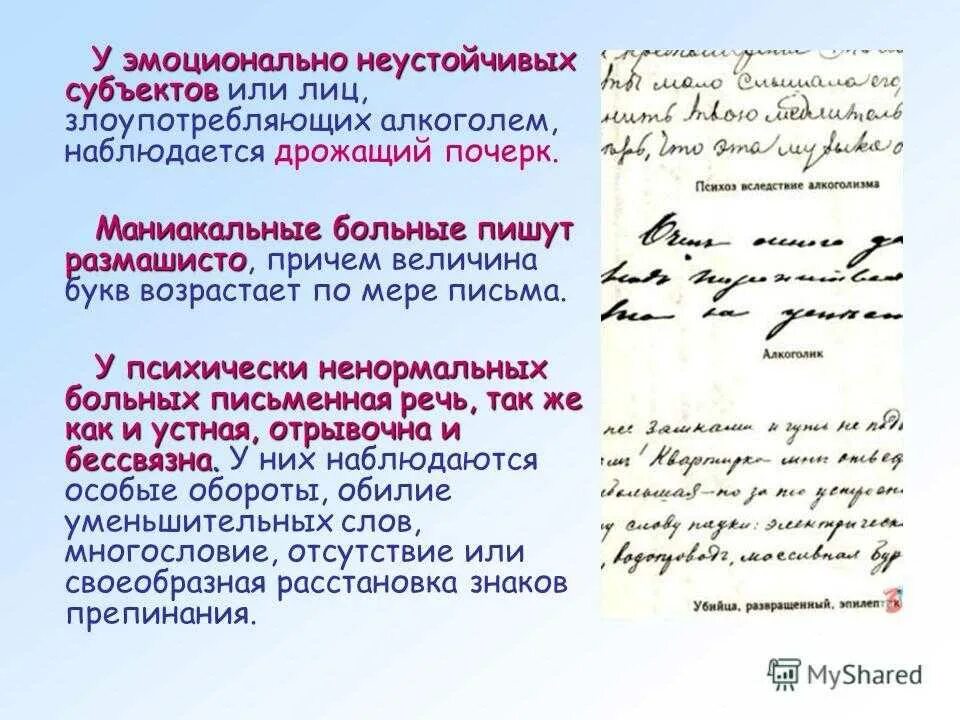 У эмоционально неустойчивых
субъектов или лиц,
злоупотребляющих алкоголем,
наблюдается дрожащий почерк.
Маниакальные больные пишут
размашисто, причем величина
букв возрастает по мере письма.
У психически ненормальных
больных письменная речь, так же
как и устная, отрывочна и
бессвязна. У них наблюдаются
особые обороты, обилие
уменьшительных слов,
многословие, отсутствие или
своеобразная расстановка знаков
препинания.
ты мало слышала его
нить твою
что эта музыка
Психоз вследствие алкоголизма
Очень много
на
Алкоголик
замками и чуть не
Квартирка мнѣ
большая – но за то
слову науки: электрическ
водопроводъ, массивная
Убийца, развращенный, эпилептик
3
MyShared